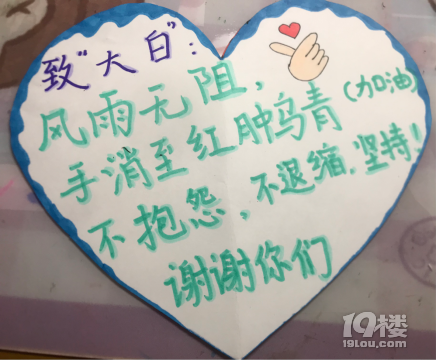 致"大白":
风雨无阻,
手消至红肿乌青(加油)
不抱怨,不退缩.坚持!
谢谢你们
19楼
19lou.com